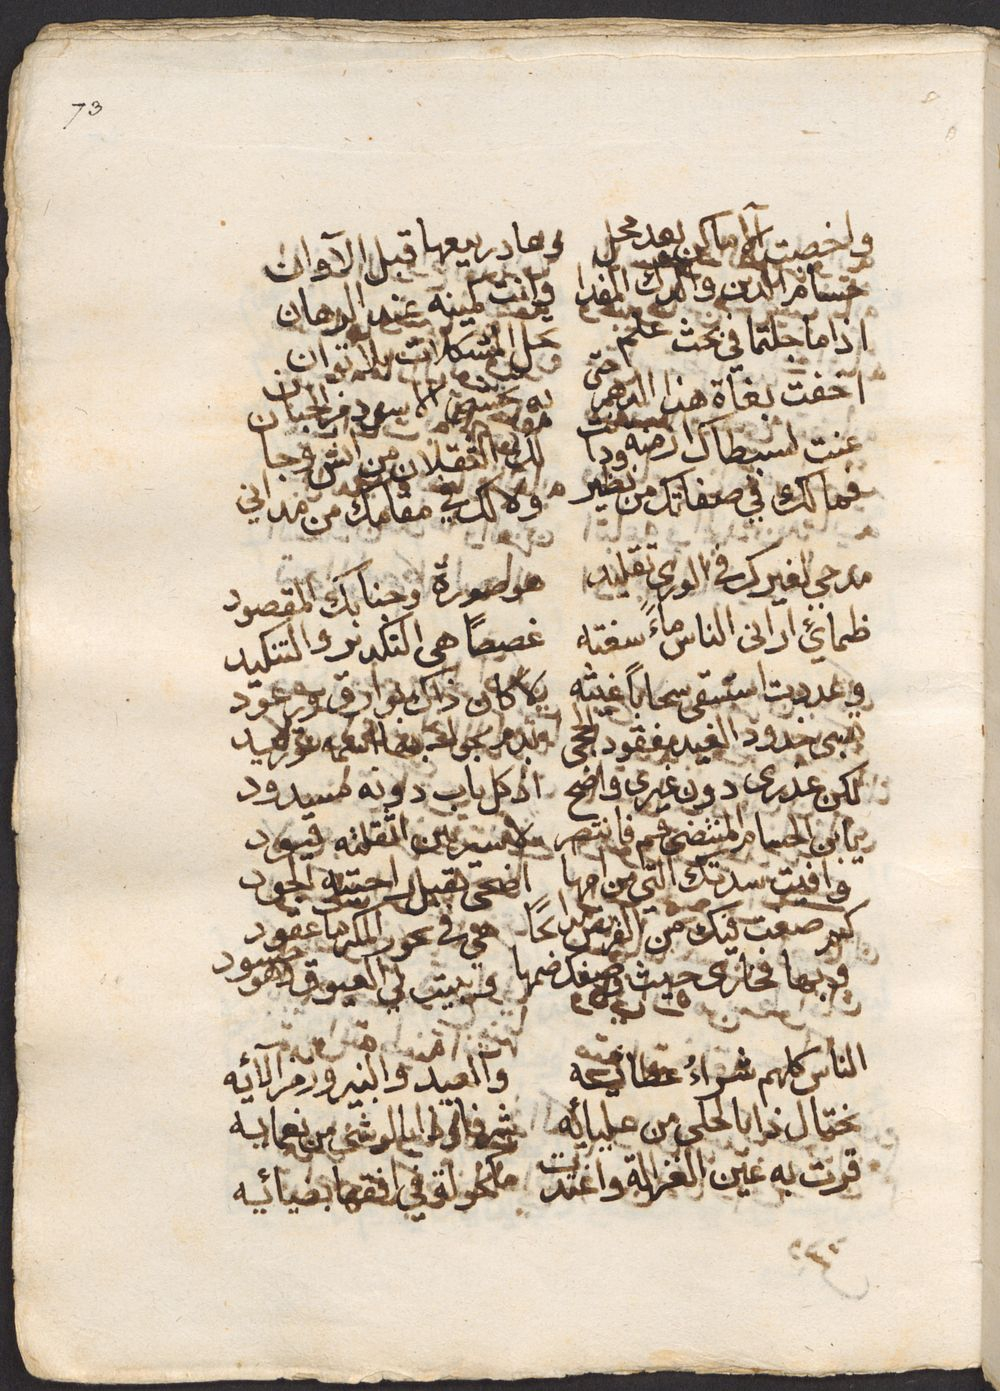 73
واخصت الاماكن بعد محل وعاد ربيعها قبل الآوان
حسام الدين والدك المفدا وانت يمينه عند الرهان
اذا ما جلتما في بحث علم بحل المشكلات
اخفت بغاة هذا الدهر حتى به تخشى الاسود من الجبان
عنت لسطاك ارضه ودانت لك الثقلان من انس وجان
فما لك في صفاتك من نظير ولا لك في مقامك من مداني
مدحي لغيرك في الورى تقليد هو صورة وجنابك المقصود
ظمائي اراني الناس ماءً سغته غصصاً هي التكدير والتنكيد
وغدوت استسقي سحاباً غيثه كان ذاك بوارق ورعود
بخدود الغيد مفقود الحجى
لكن عذري دون غيري واضح اذ كل باب دونه مسدود
يا بن الحسام المنتضى قم فانتصر لاسير بين اثقلته قيود
وافيت سدتك التي من امها اضحى يقبل راحتيه الجود
كم صغت فيك من القريض هي في نحور المكرمات عقود
وبها فخاري حيث وصفك ضمها ويبيت لي العيوق وهو حسود
الناس كلهم شراءُ عطائه والعيد والنيروز من آلآئه
يختال ذا بالحلي من عليائه شرفا وذا بالوشي من نعمايه
قرت به عين الغزالة واغتدت مكحولة في افقها بضيائيه